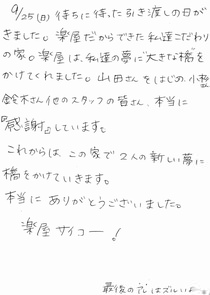 9/25(日) 待ちに待った引き渡しの日が
きました。楽屋だからできた私達こだわり
の家。楽屋は、私達の夢に"大きな橋"を
かけてくれました。山田さんをはじめ、小松
鈴木さん他のスタッフの皆さん、本当に
『感謝』しています。
これからは、この家で2人の新しい夢に
橋をかけていきます。
本当に ありがとうございました。
楽屋サイコー!
最後の はズルいよ…。